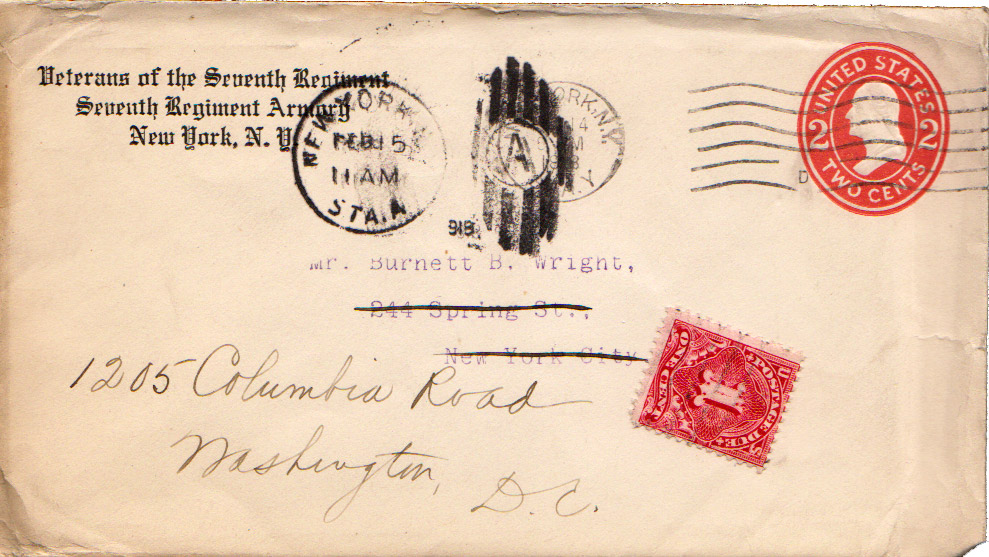 Veterans of the Seventh Regiment
Seventh Regiment Armory
New York, N. Y.
NEW YORK
FEB 15
11 AM
STA. A
A
918
ORK, N.Y.
4
M
Y
D
UNITED STATES
2 2
TWO CENTS
Mr. Burnett B. Wright,
244 Spring St.,
New York City
1205 Columbia Road
Washington, D.C.
POSTAGE DUE
1
ONE CENT